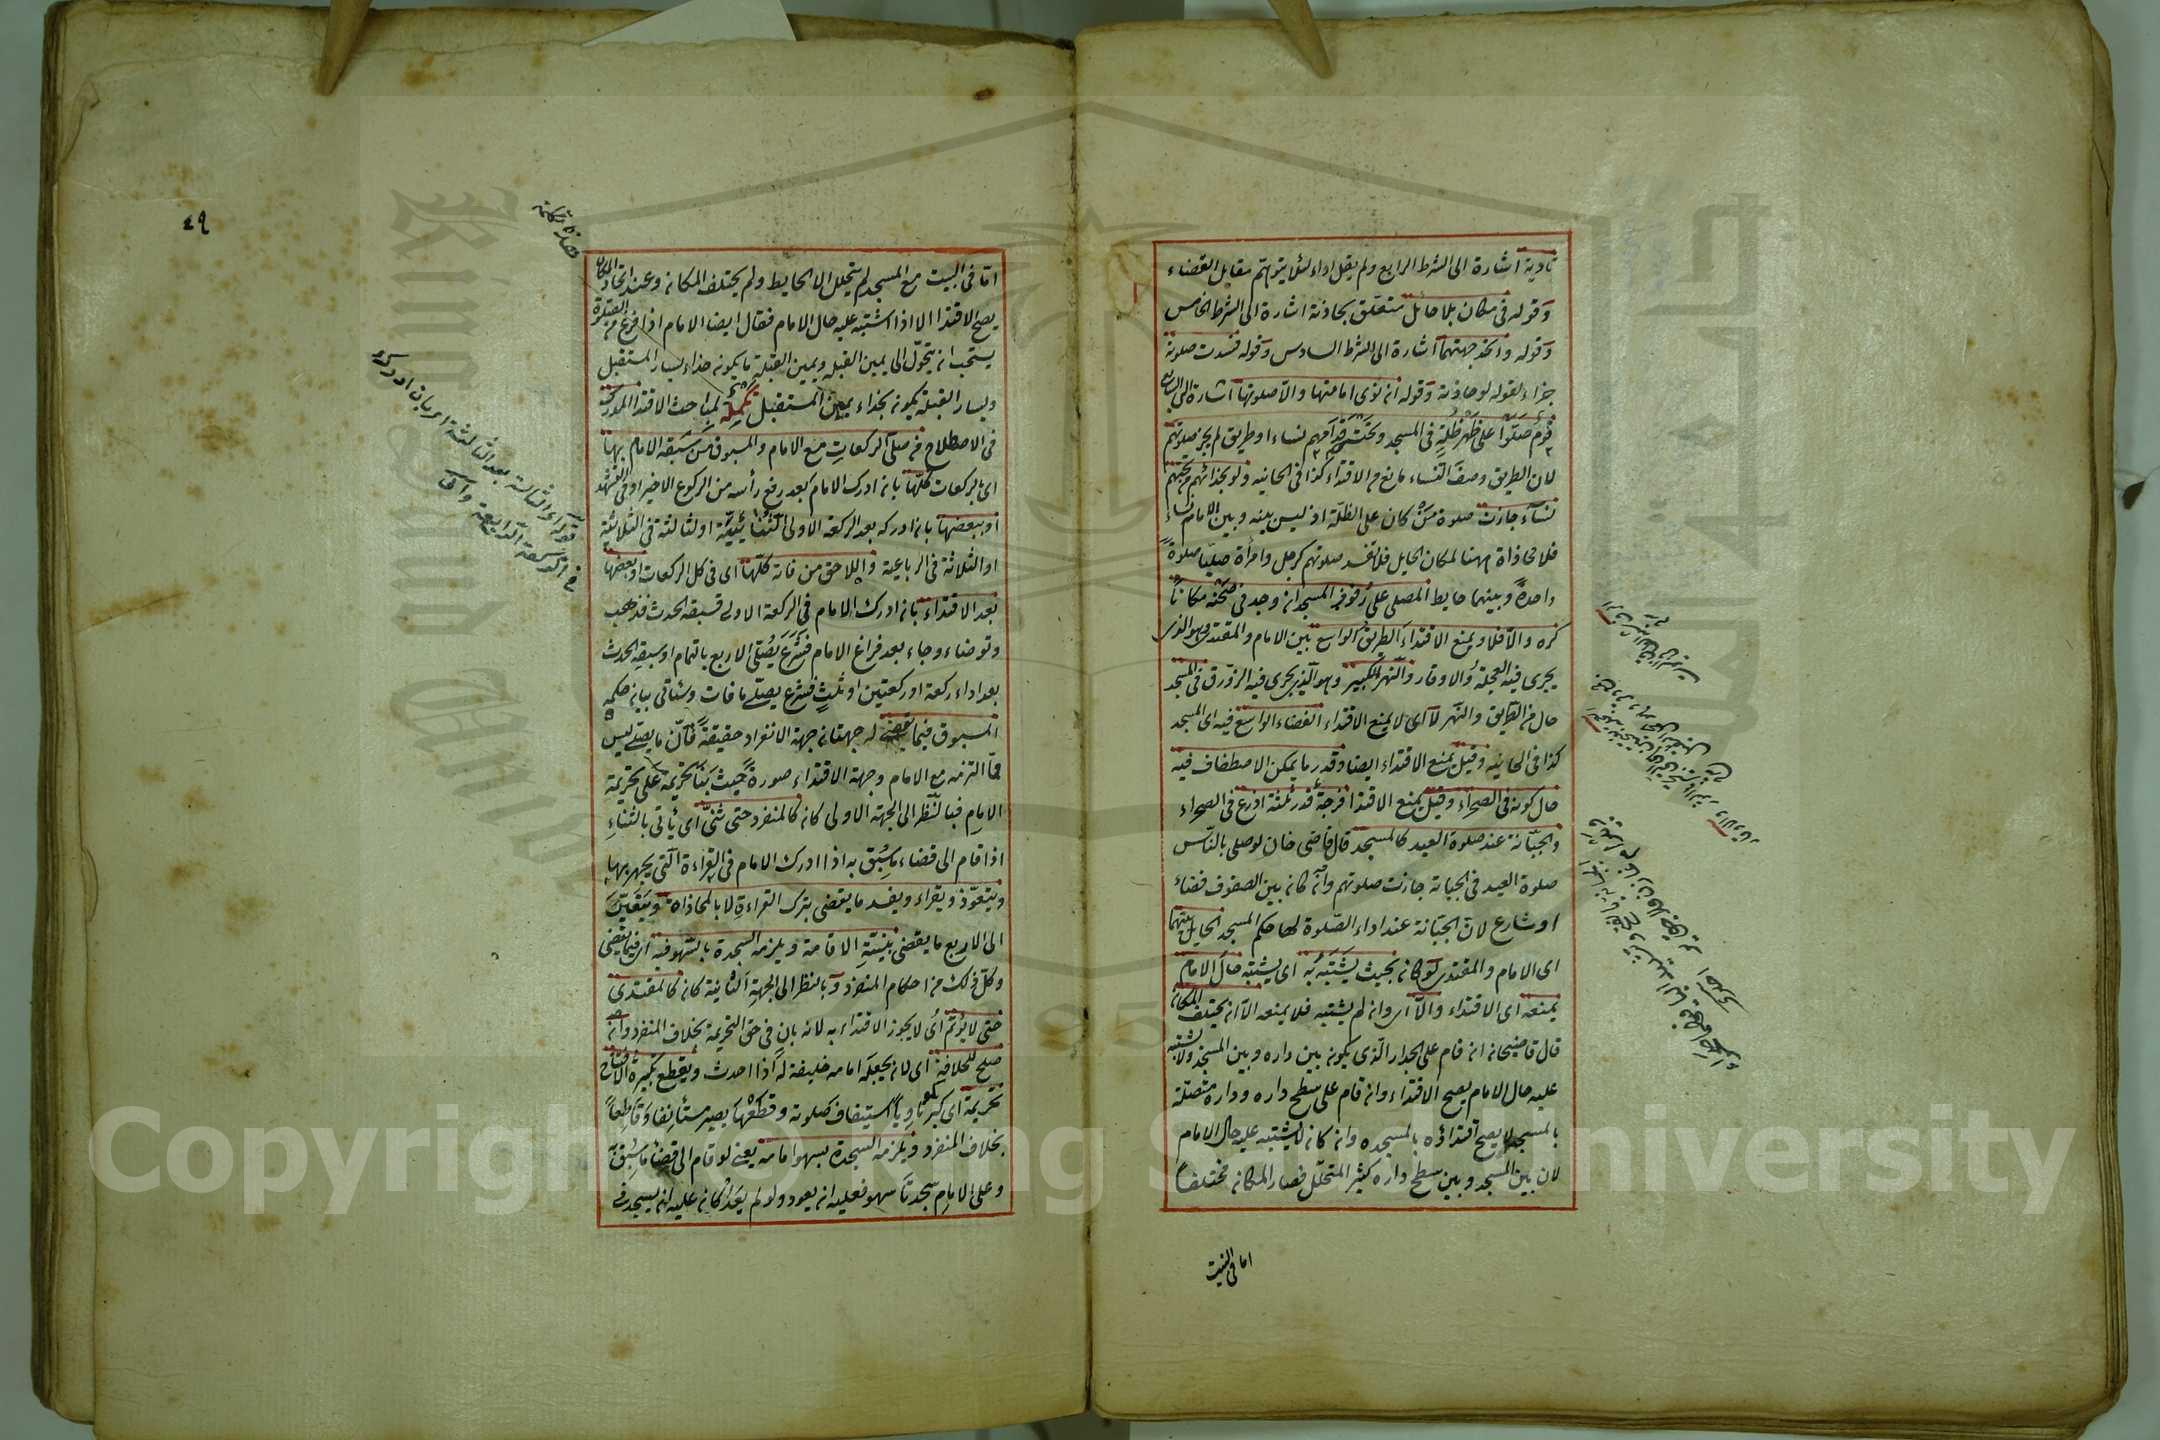 تادية اشارة الى الشرط الرابع ولم يقل اداء لئلا يتوهم مقابل القضاء
وقوله في مكان بلا حائل متعلق بحاذته اشارة الى الشرط الخامس
وقوله واتحد جهتهما اشارة الى الشرط السادس وقوله فسدت صلوته
جزاء لقوله لو حاذته وقوله ان نوى امامتها والا صلوتها اشارة الى السابع
قوم صلوا على ظهر ظلة في المسجد وتحت قدامهم نساء او طريق لم يجز صلوتهم
لان الطريق وصف النساء مانع من الاقتداء كذا في الخانيه ولو بحذائهم من تحتهم
نساء جازت صلوة من كان على الظلة اذ ليس بينه وبين الامام نساء
فلا محاذاة ههنا لمكان الحايل فلا تفسد صلوتهم كرجل وامرأة صليا صلوة
واحدة وبينهما حايط المصلى على رفوف المسجد ان وجد في صحنه مكانا
كره والا فلا ويمنع الاقتداء الطريق الواسع بين الامام والمقتدى وهو الذى
يجرى فيه العجلة والاوقار والنهر الكبير وهو الذى يجرى فيه الزورق في المسجد
حال من الطريق والنهر لا اى لا يمنع الاقتداء الفضاء الواسع فيه اى المسجد
كذا في الخانيه وقيل يمنع الاقتداء ايضا وقدر ما يمكن الاصطفاف فيه
حال كونه في الصحراء وقيل يمنع الاقتدا فرجة قدر ثلثة اذرع في الصحراء
والجبانة عند صلوة العيد كالمسجد قال قاضى خان لو صلى بالناس
صلوة العيد في الجبانة جازت صلوتهم وان كان بين الصفوف فضاء
او شارع لان الجبانة عند اداء الصلوة لها حكم المسجد الحايل بينهما
اى الامام والمقتدى لو كان بحيث يشتبه به اى يشتبه حال الامام
يمنعه اى الاقتداء والا اى وان لم يشتبه فلا يمنعه الا ان يختلف المكان
قال قاضيخان ان قام على الجدار الذى يكون بين داره وبين المسجد ولا يشتبه
عليه حال الامام يصح الاقتداء وان قام على سطح داره وداره متصلة
بالمسجد لا يصح اقتداؤه بالمسجده وان كان لا يشتبه عليه حال الامام
لان بين المسجد وبين سطح داره كثير المتخلل فصار المكان مختلفا
اما في البيت
٤٩
اما في البيت مع المسجد لم يتخلل الا الحايط ولم يختلف المكان وعند اتحاد المكان
يصح الاقتدا الا اذا اشتبه عليه حال الامام فقال ايضا الامام اذا فرغ من الصلوة
يستحب ان يتحول الى يمين القبلة ويمين القبلة ما يكون حذاء يسار المستقبل
ويسار القبلة يكون بحذاء يمين المستقبل تكملة لمباحث الاقتدا المدرك
في الاصطلاح من صلى الركعات مع الامام والمسبوق من سبقه الامام بها
اى بالركعات كلها بان ادرك الامام بعد رفع رأسه من الركوع الاخير او في التشهد
او ببعضها بان ادركه بعد الركعة الاولى الثنائية او الثالثة في الثلاثية
او الثلاثة في الرباعية واللاحق من فاته كلها اى في كل الركعات او بعضها
بعد الاقتداء بان ادرك الامام في الركعة الاولى فسبقه الحدث فذهب
وتوضاء وجاء بعد فراغ الامام فشرع يصلى الاربع باتمام او سبقه الحدث
بعد اداء ركعة او ركعتين او ثلث فشرع يصلى ما فات وسئاتى بيان حكمه
المسبوق فيما يقضى له جهتان جهة الانفراد حقيقة فان ما يصلى ليس
مما التزمه مع الامام وجهة الاقتداء صورة حيث بنا تحريمه على تحريمة
الامام فبالنظر الى الجهة الاولى كان كالمنفرد حتى ثنى اى يأتى بالثناء
اذا قام الى قضاء ما سبق به اذا ادرك الامام في القراءة التى يجهر بها
ويتعوذ ويقراء ويفسد ما يقضى بترك القراءة لا بالمحاذاة ويتغير
الى الاربع ما يقضى بنيته الاقامة ويلزمه السجدة بالسهو فيه اى فيما يقضى
وكل ذلك من احكام المنفرد وبالنظر الى الجهة الثانية كان كالمقتدى
حتى لا يؤتم اى لا يجوز الاقتداء به لانه بان في حق التحريمة بخلاف المنفرد وان
صلح للخلافة اى لان يجعله امامه خليفة له اذا احدث ويقطع تكبيرة الافتتاح
تحريمة اى لو كبر ناويا استيناف صلوته وقطعها يصير مستأنفا وقاطعا
بخلاف المنفرد ويلزمه السجدة بسهو امامه يعنى لو قام الى قضاء ما سبق به
وعلى الامام سجدتا سهو فعليه ان يعود ولو لم يعد كان عليه ان يسجد في
Copyright © King Saud University